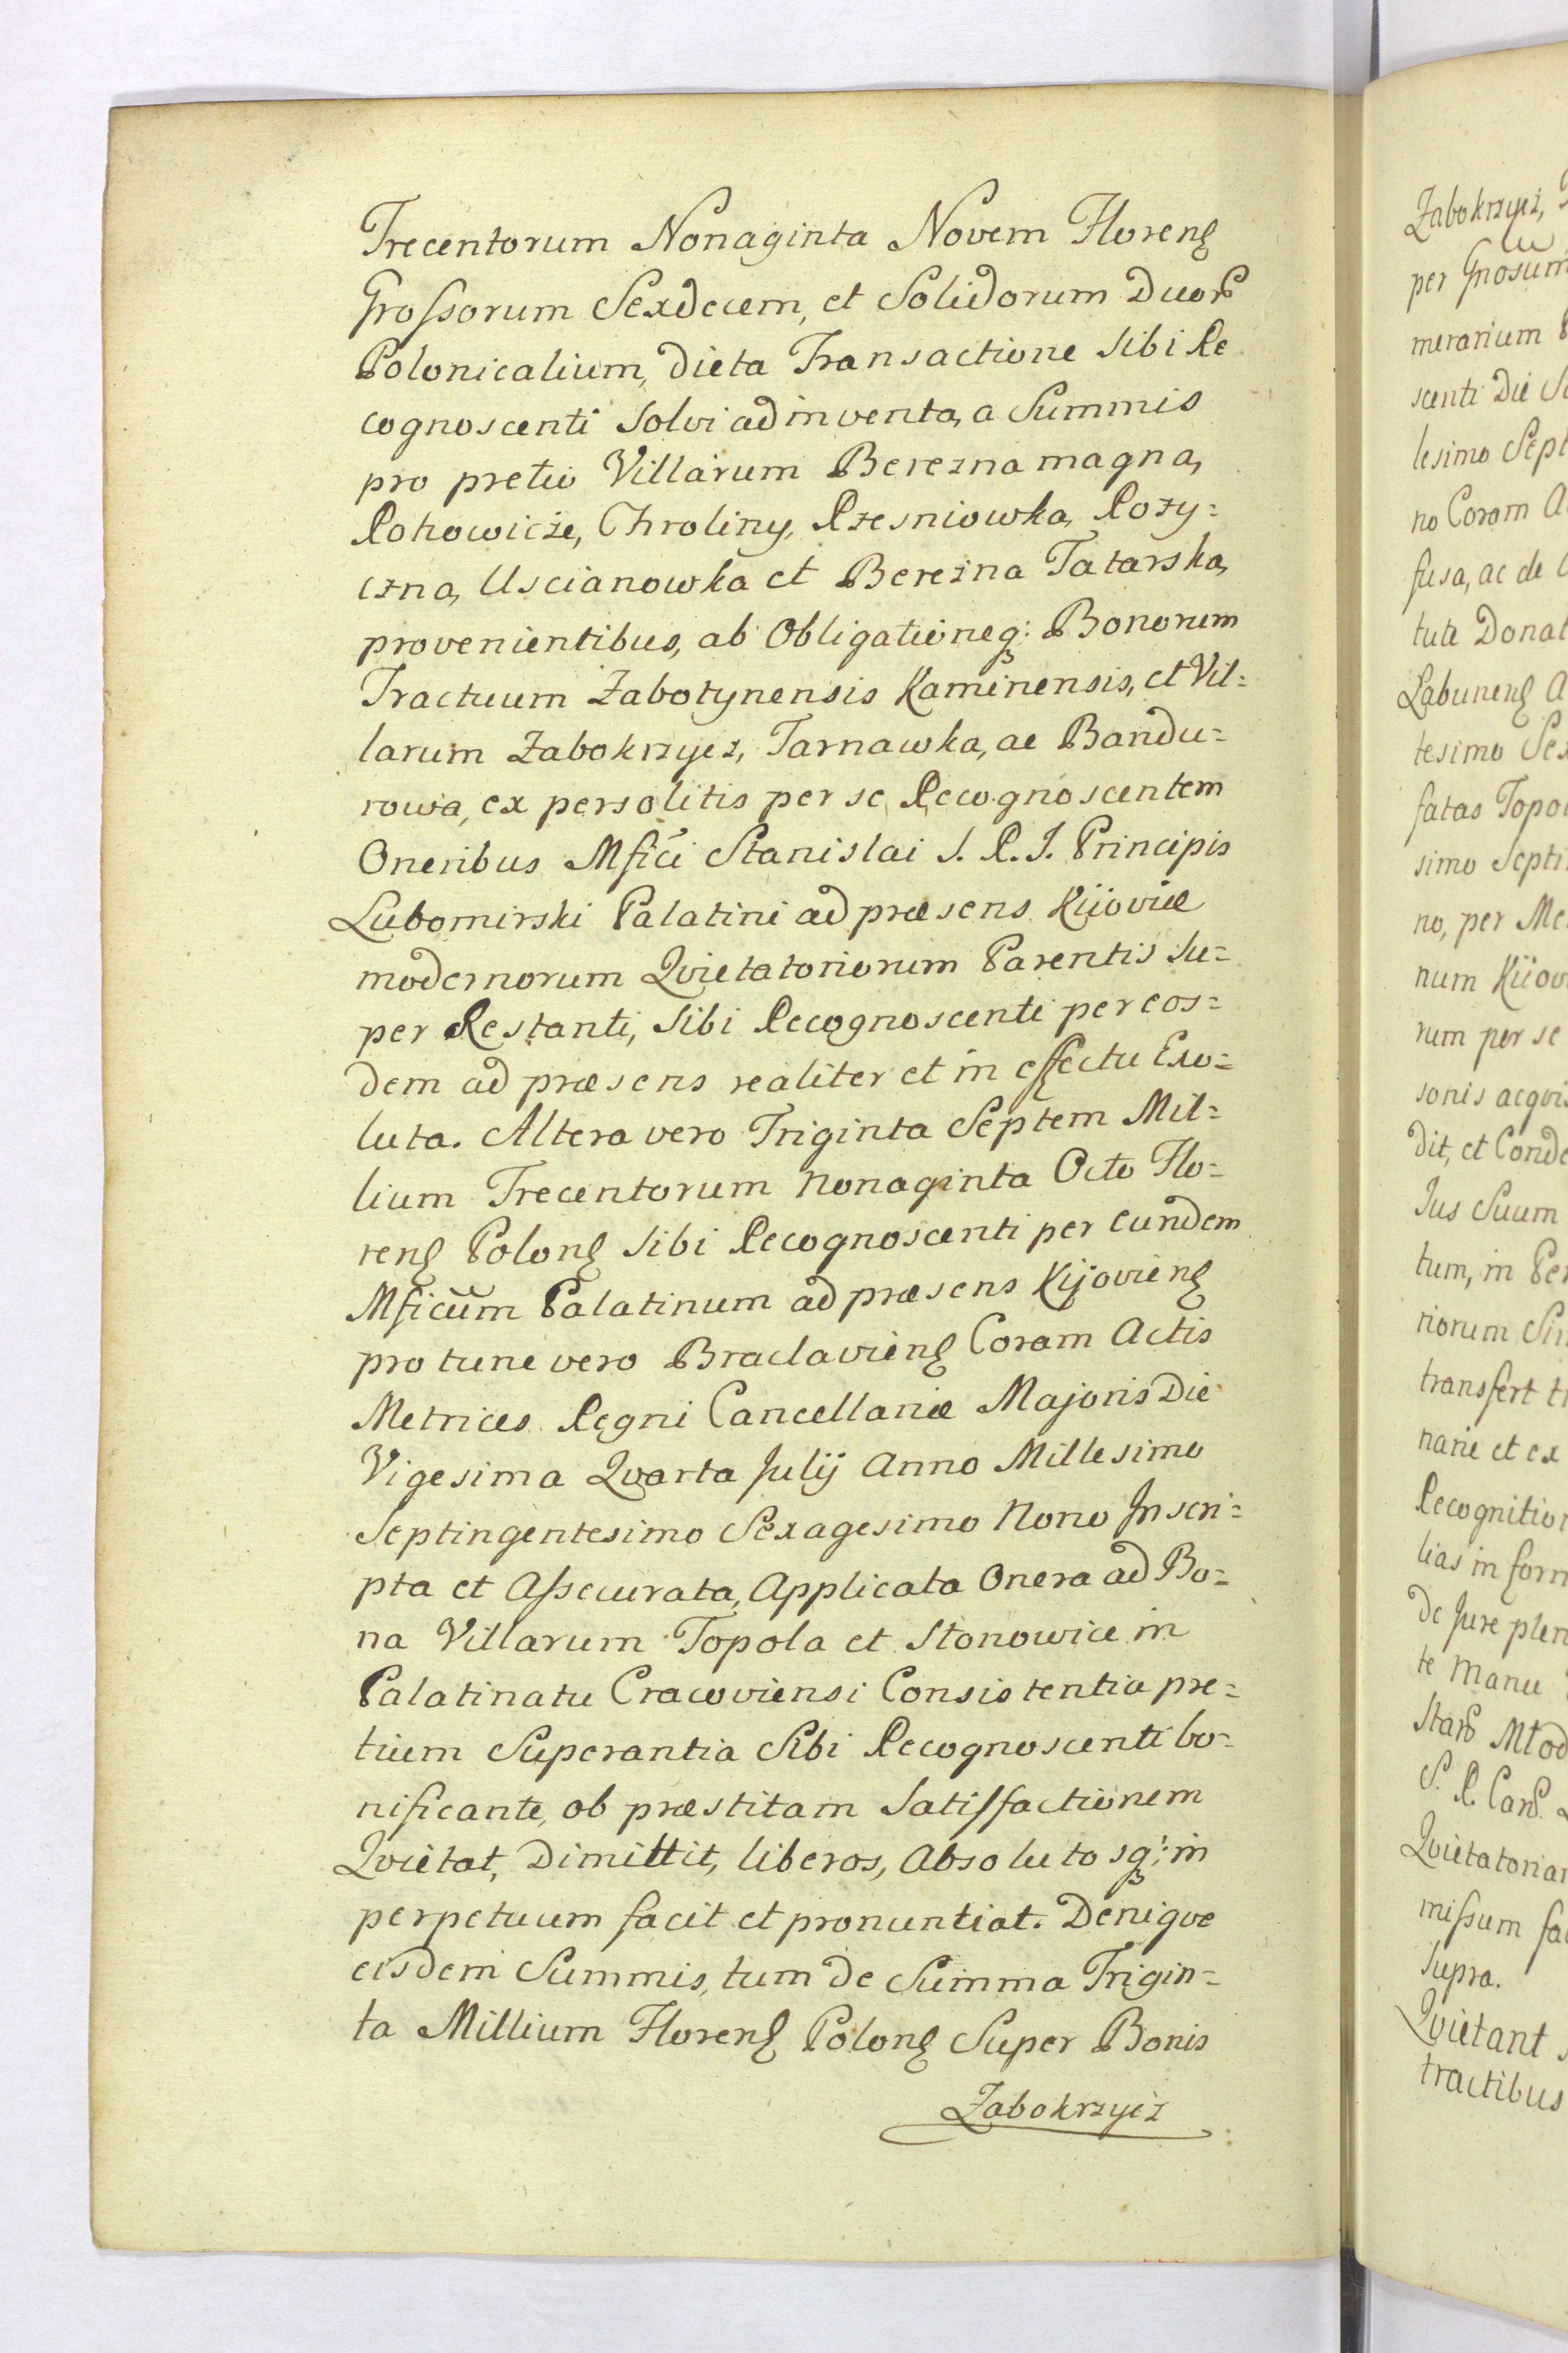 Trecentorum Nonaginta Novem Florenʒ
Grossorum Sexdecem, et Solidorum Duorꝝ
Polonicalium, dicta Transactione sibi Re
cognoscenti solvi adinventa, a Summis
pro pretio Villarum Berezna magna,
Rohowicze, Chroliny, Rzesniowka, Rozy=
czna, Uscianowka et Berezna Tatarska,
provenientibus, ab Obligationeq: Bonorum
Tractuum Zabotynensis Kaminensis, et Vil=
larum Zabokrzycz, Tarnawka, ac Bandu=
rowa, ex persolitis per se Recognoscentem
Oneribus Mfici Stanislai S. R. I. Principis
Lubomirski Palatini ad præsens Kijoviæ
modernorum Qvietatoriorum Parentis su=
per Restanti, sibi Recognoscenti per eos=
dem ad præsens realiter et in effectu Exo=
luta. Altera vero Triginta Septem Mil=
lium Trecentorum nonaginta Octo Flo=
renʒ Polonʒ sibi Recognoscenti per eundem
Mficum Palatinum ad præsens Kijovienʒ
pro tunc vero Braclavienʒ Coram Actis
Metrices Regni Cancellariæ Majoris Die
Vigesima Qvarta Julij Anno Millesimo
Septingentesimo Sexagesimo Nono Inscri=
pta et Assecurata, Applicata Onera ad Bo=
na Villarum Topola et Stonowice in
Palatinatu Cracoviensi Consistentia pre=
tium Superantia Sibi Recognoscenti bo=
nificante, ob præstitam Satisfactionem
Qvietat, Dimittit, liberos, Absolutosq: in
perpetuum facit et pronuntiat. Deniqve
eisdem Summis, tum de Summa Trigin=
ta Millium Florenʒ Polonʒ Super Bonis
Zabokrzycz
Zabokrzycz,
per Gnosum
merarium
scenti Die
lesimo Sept
no Coram
fusa, ac de
tute Donat
Labunenʒ
tesimo Sex
fatas Topo
simo Septi
no, per
num Kiiov
rum per se
sonis acqvis
dit, et Conde
Jus Suum
tum, in
riorum
transfert
narie et ex
Recognitio
lias in form
de Jure plen
te Manu
Starꝝ Młod
S. R.
Qvietatoriam
missum
supra.
Qvietant
tractibus